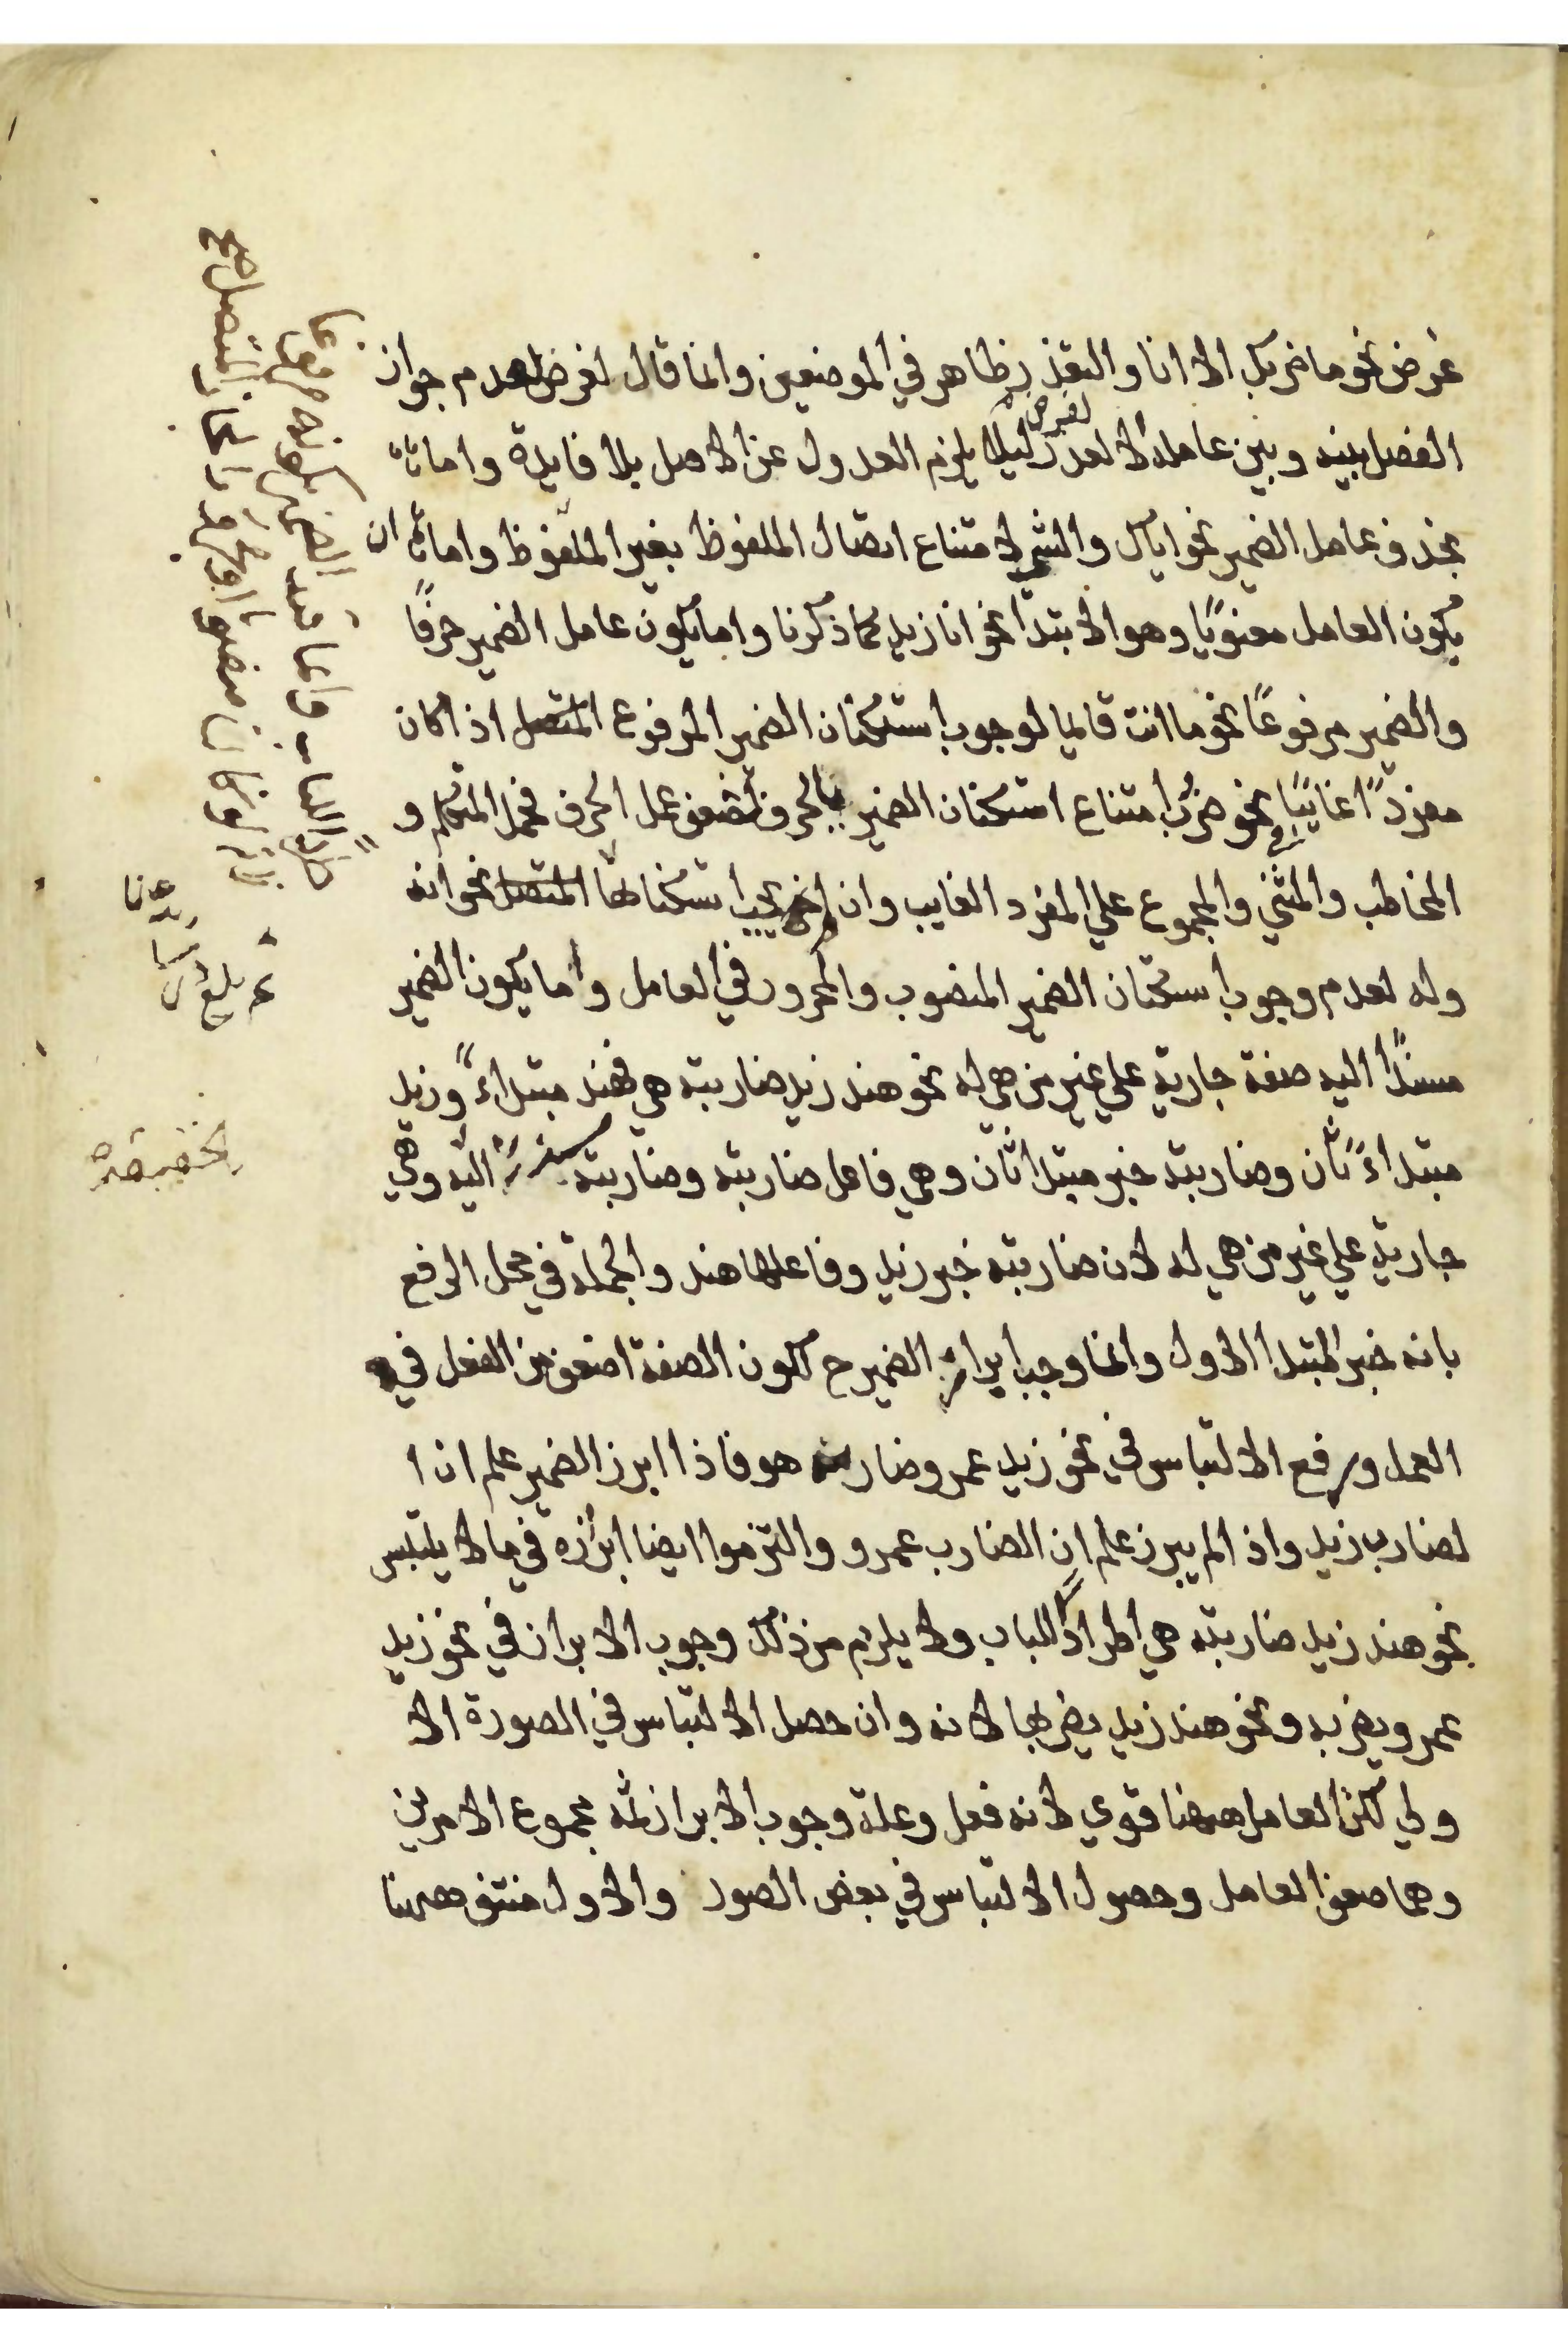 غرض نحو ما ضربك الا انا والتعذر ظاهر في الموضعين وانما قال لغرض لعدم جواز
الفصل بينه وبين عامله الا لغرض ليلا يلزم العدول عن الاصل بلا فايدة واما
بحذف عامل الضمير نحو اياك والشر لامتناع اتصال الملفوظ بغير الملفوظ واما ان
يكون العامل معنويًا وهو الابتدا نحو انا زيد كما ذكرنا واما يكون عامل الضمير حرفًا
والضمير مرفوعًا نحو ما انت قايما لوجوب استكنان الضمير المرفوع المتصل اذا كان
مفردًا غايبًا نحو ضرب امتناع استكنان الضمير بالحرف لضعف عمل الحرف فحمل المتكلم و
المخاطب والمثني والمجموع علي المفرد الغايب وان يجب استكنانها المتصل نحو انه
وله لعدم وجوب استكنان الضمير المنصوب والمجرور في العامل واما يكون الضمير
مسندًا اليه صفة جارية علي غير من هي له نحو هند زيد ضاربته هي فهند مبتداءٌ وزيد
مبتداءً ثان وضاربته خبر مبتدا ثان وهي فاعل ضاربته وضاربته اليه وهي
جارية علي غير من هي له لان ضاربته خبر زيد وفاعلها هند والجملة في محل الرفع
بانه خبر المبتدا الاول وانما وجب ابراز الضمير ح لكون الصفة اضعف من الفعل في
العمل ورفع الالتباس في نحو زيد عمرو ضاربه هو فاذا ابرز الضمير علم ان ا
لضارب زيد واذ الم يبرز علم ان الضارب عمرو والتزموا ايضا ابرازه في ما لا يلتبس
نحو هند زيد ضاربته هي اطرادًا للباب ولا يلزم من ذلك وجوب الابراز في نحو زيد
عمرو يضربه ونحو هند زيد يضربها لانه وان حصل الالتباس في الصورة الا
ولي لكن العامل ههنا قوي لانه فعل وعلة وجوب الابراز ثمه مجموع الامرين
وهما ضعف العامل وحصول الالتباس في بعض الصور والاول منتف ههنا